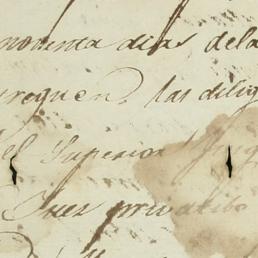 noventa dias, dela
preguen las dilig
el Superior Juzg
Juez privatibo